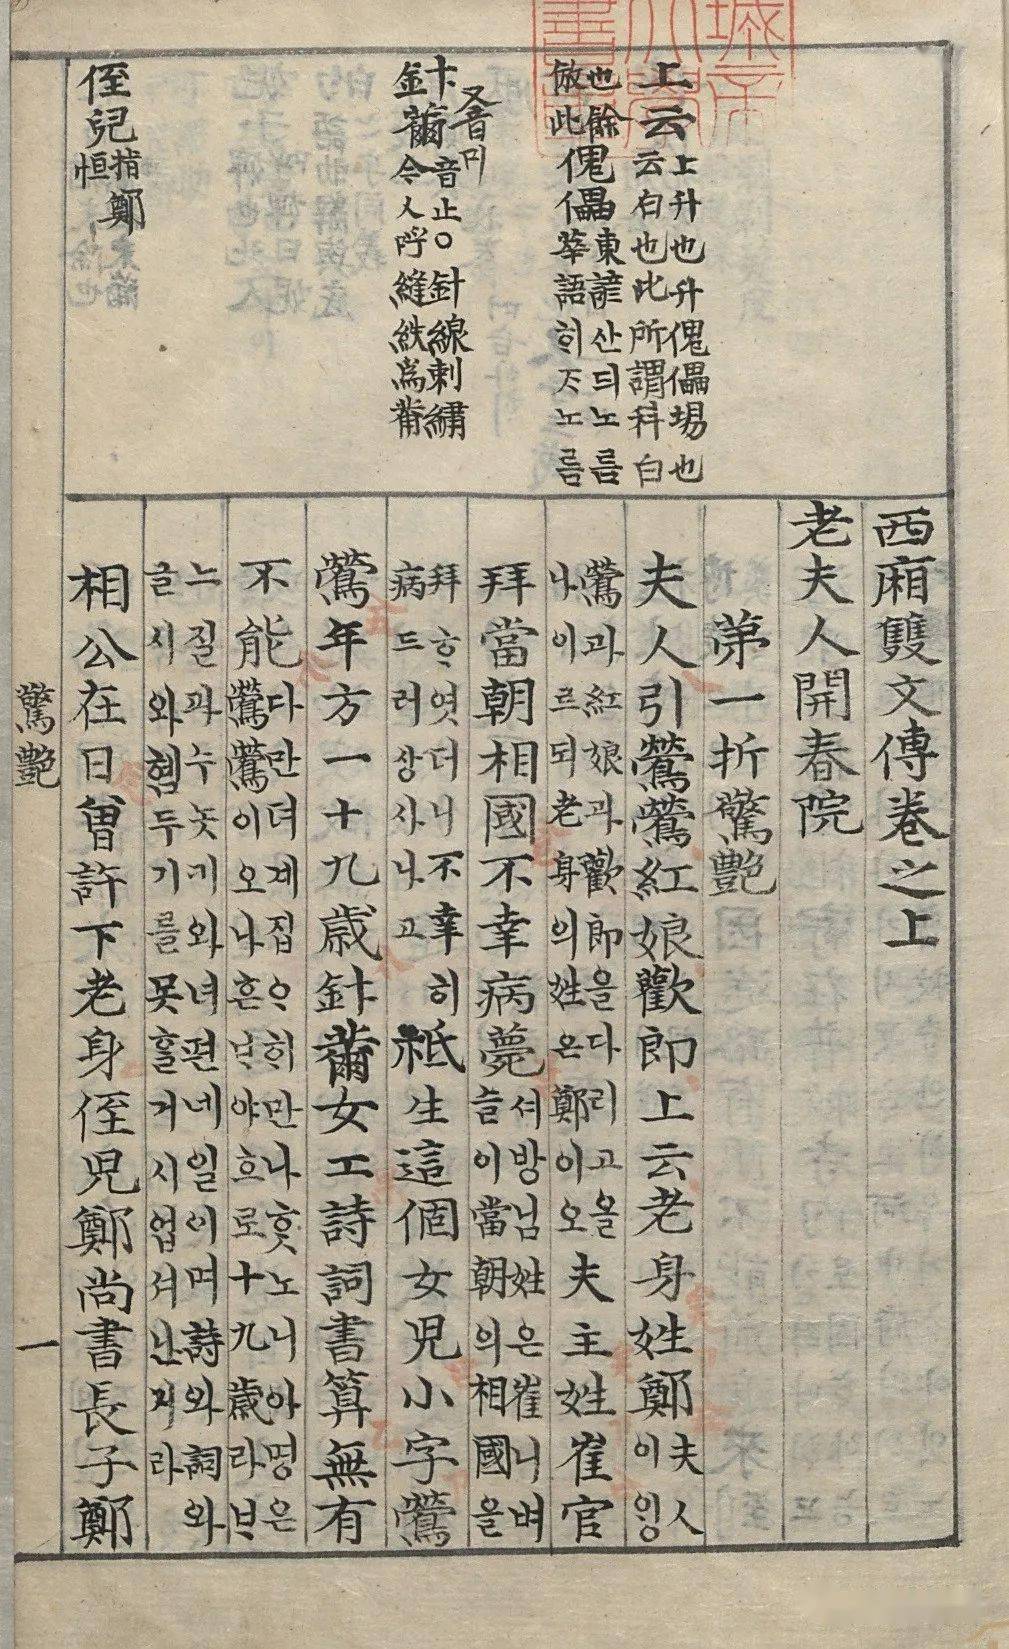 上云
上升也升傀儡場也
云白也此所謂科白
也餘
倣此
傀儡
東諺산듸노름
華語히ᄌᆞ노름
又音미
針黹
音止○針線刺繡
今人呼縫紩爲黹
侄兒
指鄭
恒
西廂雙文傳卷之上
老夫人開春院
第一折驚艷
夫人引鶯鶯紅娘歡郎上云老身姓鄭
夫人
이잉
鶯과紅娘과歡郎을다리고올
나이르되老身의姓은鄭이오
夫主姓崔官
拜當朝相國不幸病薨
셔방님姓은崔니벼
슬이當朝의相國을
拜ᄒᆞ엿더니不幸히
病드러상사나고
祗生這個女兒小字鶯
鶯年方一十九歲針黹女工詩詞書算無有
不能
다만녀계집ᄋᆞ히만나흣노니아명은
鶯鶯이오나흔ᄇᆞ야흐로十九歲라ᄇᆞ
느질과수놋기와녀편네일이며詩와詞와
글시와혐두기를못ᄒᆞᆯ거시업셔난지라
相公在日曾許下老身侄兒鄭尚書長子鄭
驚艷
一